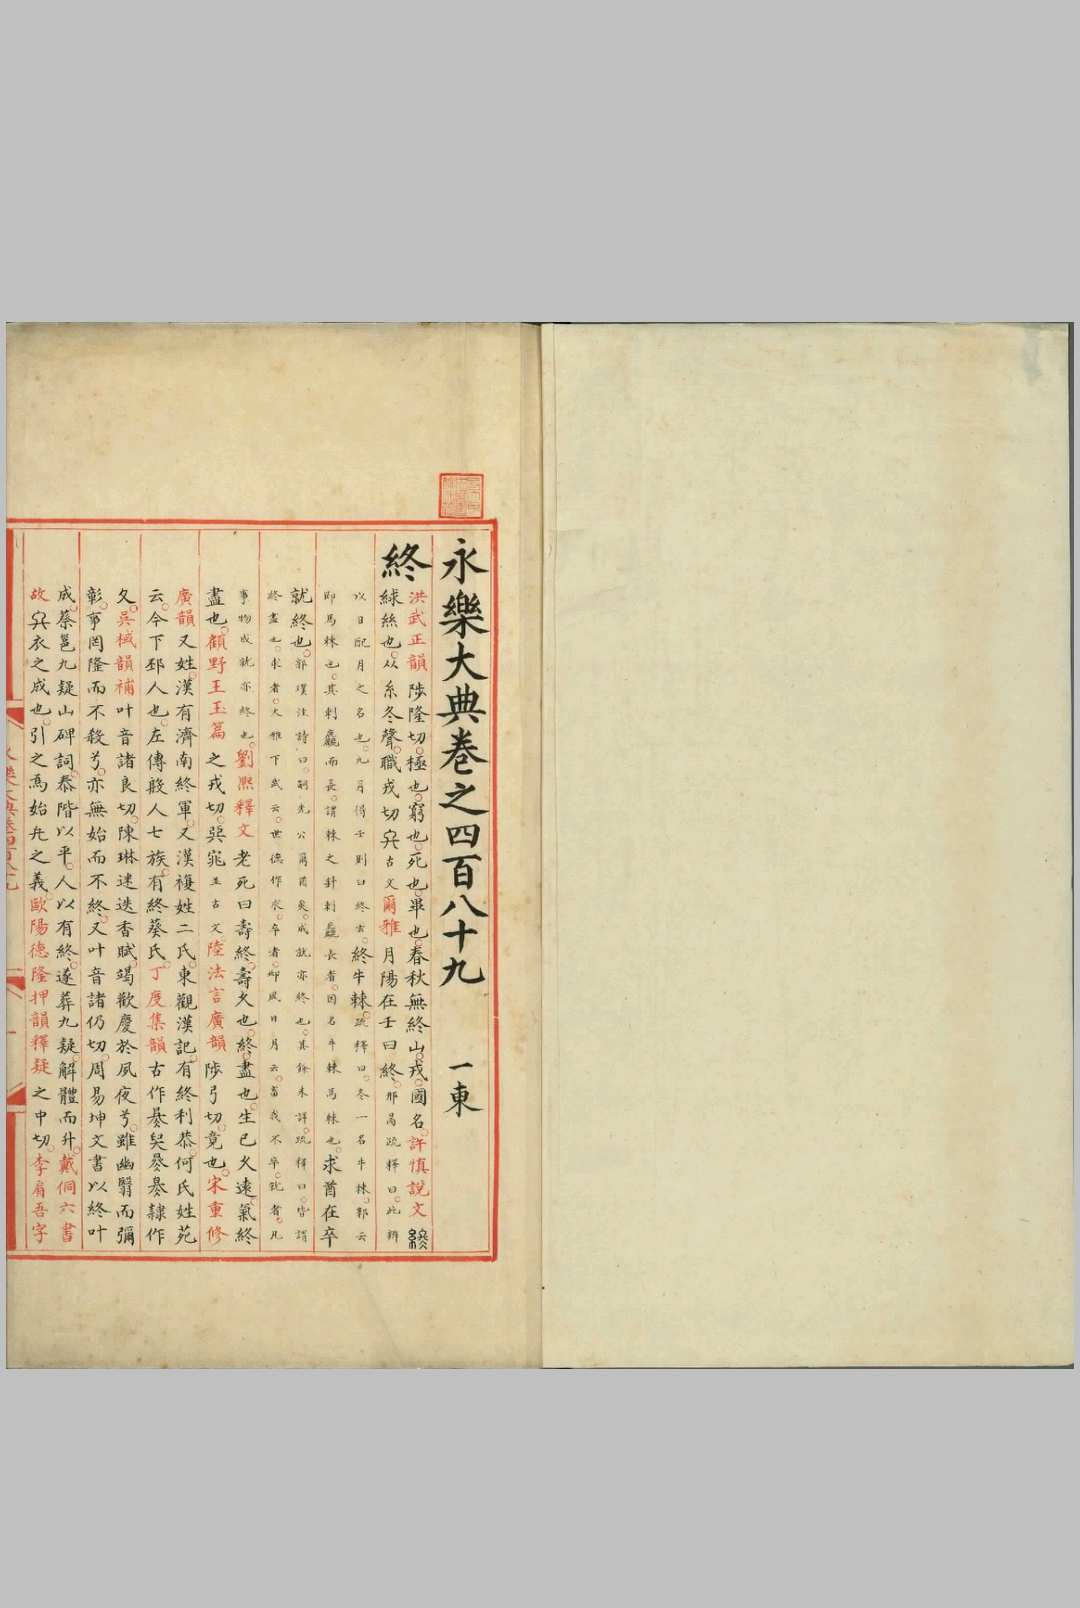 永樂大典卷之四百八十九 一東
終
洪武正韻陟隆切。極也。窮也。死也。畢也。春秋無終山戎國名。許慎說文
絿絲也。从糸冬聲。職戎切古文爾雅月陽在壬曰終。邢昺疏釋曰。此辨
以日配月之名也。九月得壬則曰終玄。終牛棘。疏釋曰。終一名牛棘。郭云
即馬棘也。其刺麤而長。謂棘之針刺麤長者。因名牛棘馬棘也。求酋在卒
就終也。郭璞注詩曰。嗣先公爾酋矣。成就亦終也。其餘未詳。疏釋曰。皆謂
終盡也。求者。大雅下武云。世德作求。卒者。邶風日月云。畜我不卒。就者。凡
事物成就亦終也。劉熙釋文老死曰壽終。壽久也。終盡也。生已久遠。氣終
盡也。顧野王玉篇之戎切。古文陸法言廣韻陟弓切。竟也。宋重修
廣韻又姓。漢有濟南終軍。又漢複姓二氏。東觀漢記。有終利恭。何氏姓苑
云。今下邳人也。左傳殷人七族。有終葵氏。丁度集韻古作隸作
夂。吳棫韻補叶音諸良切。陳琳迷迭香賦。竭歡慶於夙夜兮。雖幽翳而彌
彰。事罔隆而不殺兮。亦無始而不終。又叶音諸仍切。周易坤文書以終叶
成。蔡邕九疑山碑詞。泰階以平。人以有終。遂葬九疑。解體而升。戴侗六書
故衣之成也。引之為始之義。歐陽德隆押韻釋疑之中切。李肩吾字